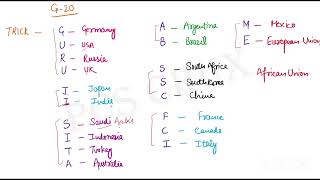 G-20
TRICK -
G - Germany
U - USA
R - Russia
U - UK
J - Japan
I - India
S - Saudi Arabia
I - Indonesia
T - Turkey
A - Australia
A - Argentina
B - Brazil
S - South Africa
S - South Korea
C - China
F - France
C - Canada
I - Italy
M - Mexico
E - European Union
African Union